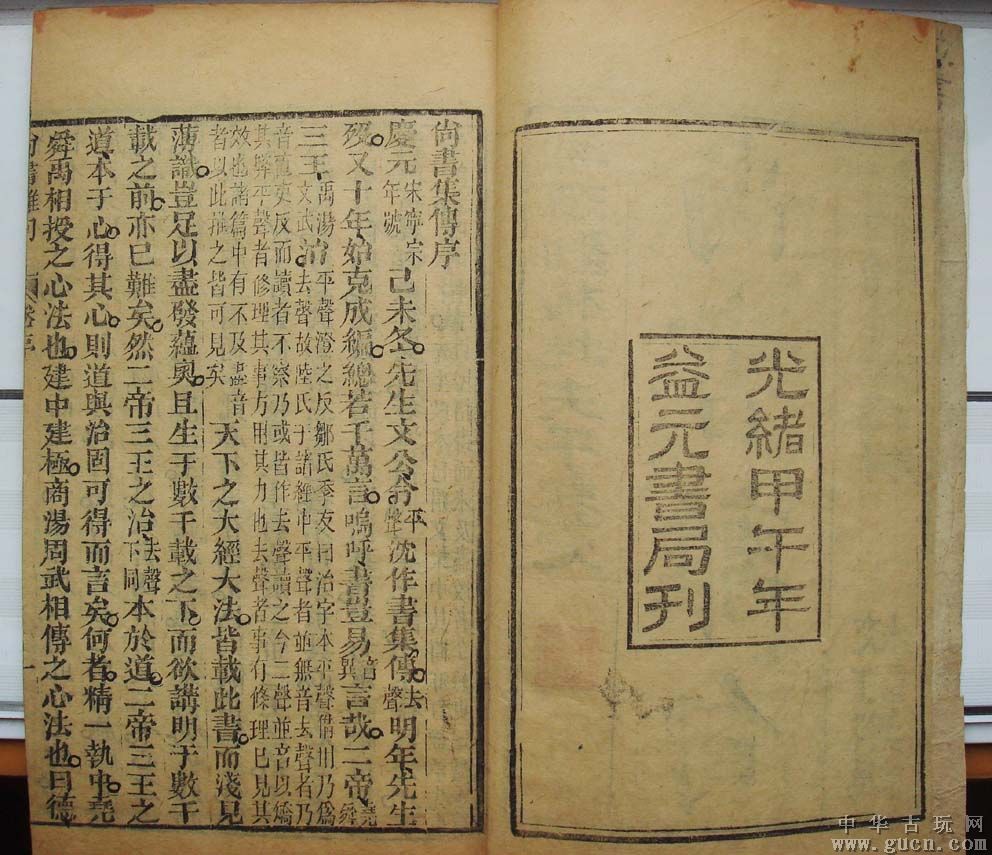 光緒甲午年
益元書局刊
尚書集傳序
慶元宋寧宗年號己未冬先生文公令平聲沈作書集傳去聲明年先生
歿又十年始克成編總若干萬言嗚呼書豈易音異言哉二帝堯舜
三王禹湯文武治平聲澄之反鄒氏季友曰治字本平聲借用乃爲去聲故陸氏于諸經中平聲者並無音去聲者乃
音直吏反而讀者不察乃或皆作去聲讀之今二聲並音以矯其弊平聲者修理其事方用其力也去聲者事有條理已見其
效也諸篇中有不及盡音者以此推之皆可見矣天下之大經大法皆載此書而淺見
薄識豈足以盡發蘊奧且生于數千載之下而欲講明于數千
載之前亦已難矣然二帝三王之治去聲下同本於道二帝三王之
道本于心得其心則道與治固可得而言矣何者精一執中堯
舜禹相授之心法也建中建極商湯周武相傳之心法也曰德
中华古玩网
www.gucn.com